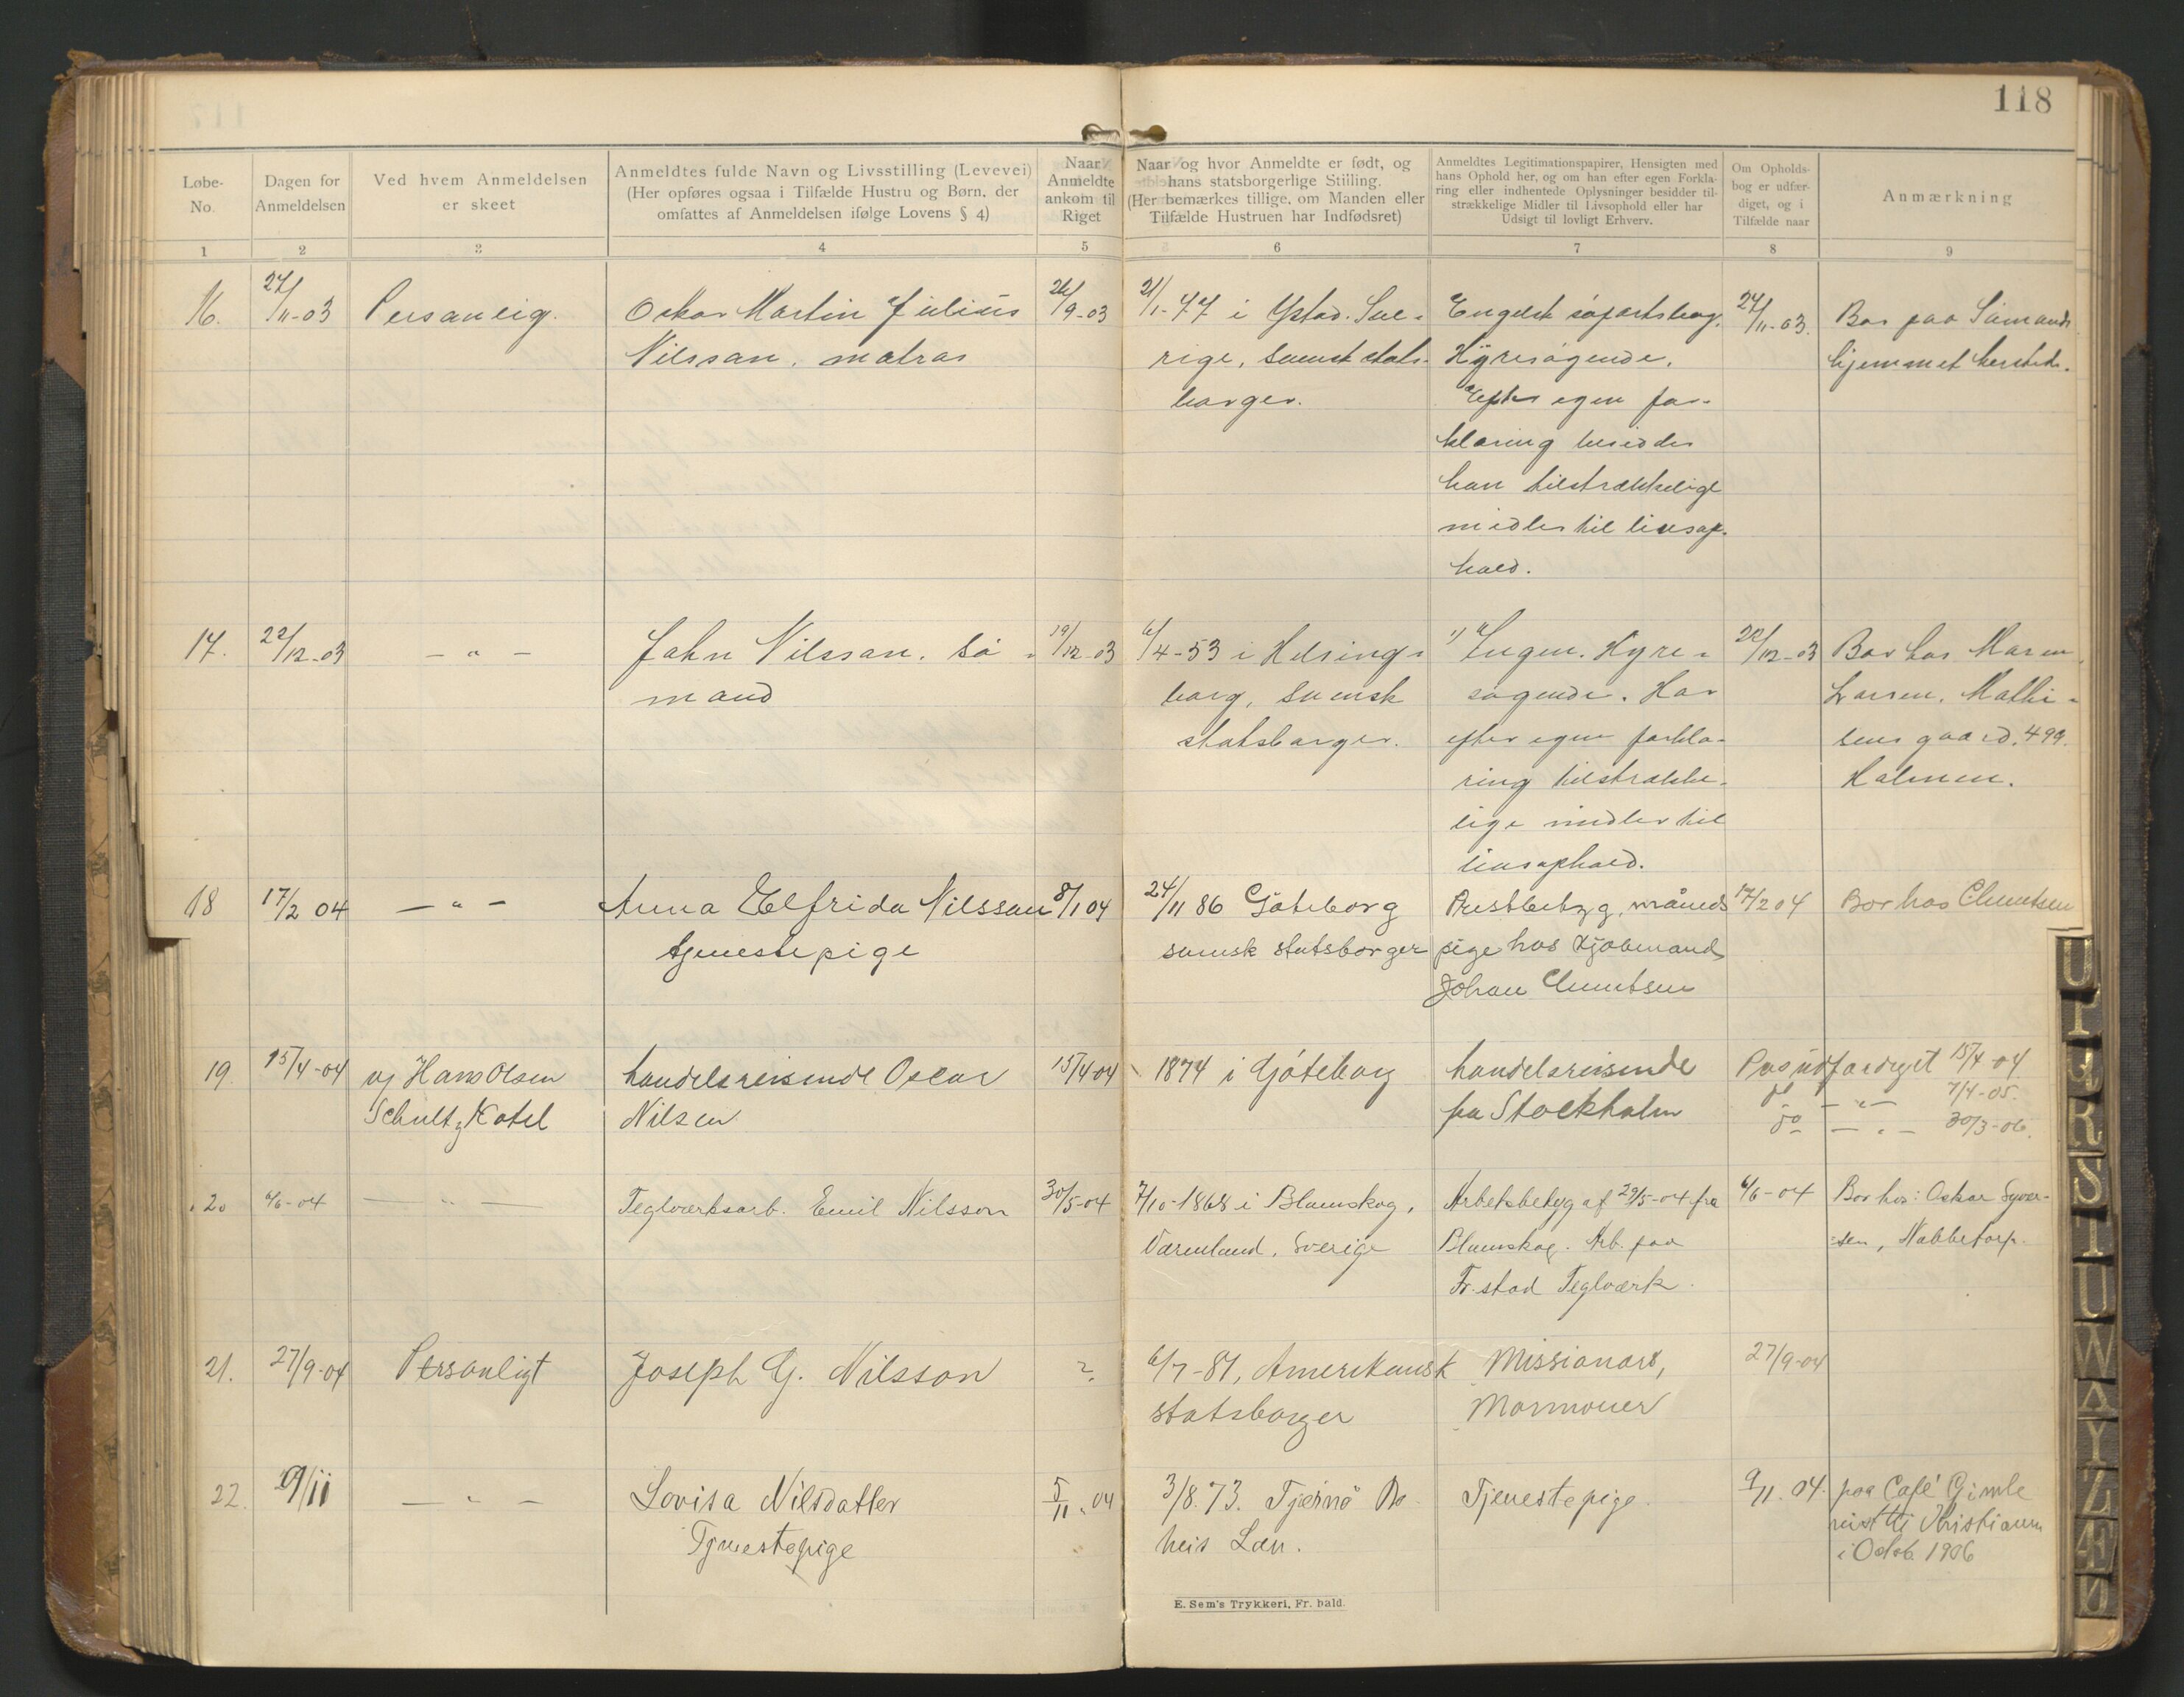 118
Løbe-
No.
Dagen for
Anmeldelsen
Ved hvem Anmeldelsen
er skeet
Anmeldtes fulde Navn og Livsstilling (Levevei)
(Her opføres ogsaa i Tilfælde Hustru og Børn, der
omfattes af Anmeldelsen ifølge Lovens § 4)
Naar
Anmeldte
ankom til
Riget
Naar og hvor Anmeldte er født, og
hans statsborgerlige Stilling.
(Her bemærkes tillige, om Manden eller
Tilfælde Hustruen har Indfødsret)
Anmeldtes Legitimationspapirer, Hensigten med
hans Ophold her, og om han efter egen Forkla-
ring eller indhentede Oplysninger besidder til-
strækkelige Midler til Livsophold eller har
Udsigt til lovligt Erhverv.
Om Opholds-
bog er udfær-
diget, og i
Tilfælde naar
Anmærkning
1 2 3 4 5 6 7 8 9
16.
27/11-03
Personlig.
Oskar Martin Julius
Nilsson, matros
26/9-03
21/1-77 i Ystad. Sve-
rige, svensk stats-
borger.
Engelsk søfartsbog.
Hyresøgende.
Efter egen for-
klaring besidder
han tilstrækkelige
midler til livsop-
hold.
27/11-03.
Bor paa Sømands
hjemmet hersteds.
17.
22/12-03
— „ —
John Nilsson. Sø-
mand
19/12-03
6/4-53 i Helsing-
borg, svensk
statsborger.
1) Ingen. Hyre-
søgende. Har
efter egen forkla-
ring tilstrække-
lige midler til
livsophold.
22/12-03
Bor hos Maren
Larsen. Mathi-
sens gaard. 499.
Holmen.
18
17/2 04
— „ —
Anna Elfrida Nilsson
tjenestepige
8/1 04
24/11 86 Göteborg
svensk statsborger
Prestbetyg, måneds
pige hos Kjøbmand
Johan Clemetsen
17/2 04
Bor hos Clemetsen
19.
15/4-04
v/ Hans Olsen
Schultz Hotel
handelsreisende Oscar
Nilsen
15/4 04
1874 i Göteborg
handelsreisende
fra Stockholm
Pas udfærdiget 15/4-04
do — „ — 7/4-05.
do — „ — 30/3-06.
20
6/6-04
— „ —
Teglværksarb. Emil Nilsson
30/5-04
7/10-1868 i Blomskog,
Värmland, Sverige
Arbetsbetyg af 29/5-04 fra
Blomskog. Arb. paa
Fr.stad Teglværk.
6/6-04
Bor hos: Oskar Syver-
sen, Nabbetorp.
21.
27/9-04
Personligt
Joseph G. Nilsson
?
6/7-81, Amerikansk
statsborger
Missionær,
Mormoner
27/9-04
22.
9/11
— „ —
Lovisa Nilsdatter
Tjenestepige
5/11. 04
3/8.73. Tjernö Bo
heis Län.
Tjenestepige.
9/11. 04.
paa Café Gimle
reist til Kristiania
i Octob. 1906
E. Sem's Trykkeri, Fr. hald.
U
R
S
T
U
W
A
Y
Z
Æ
Ø